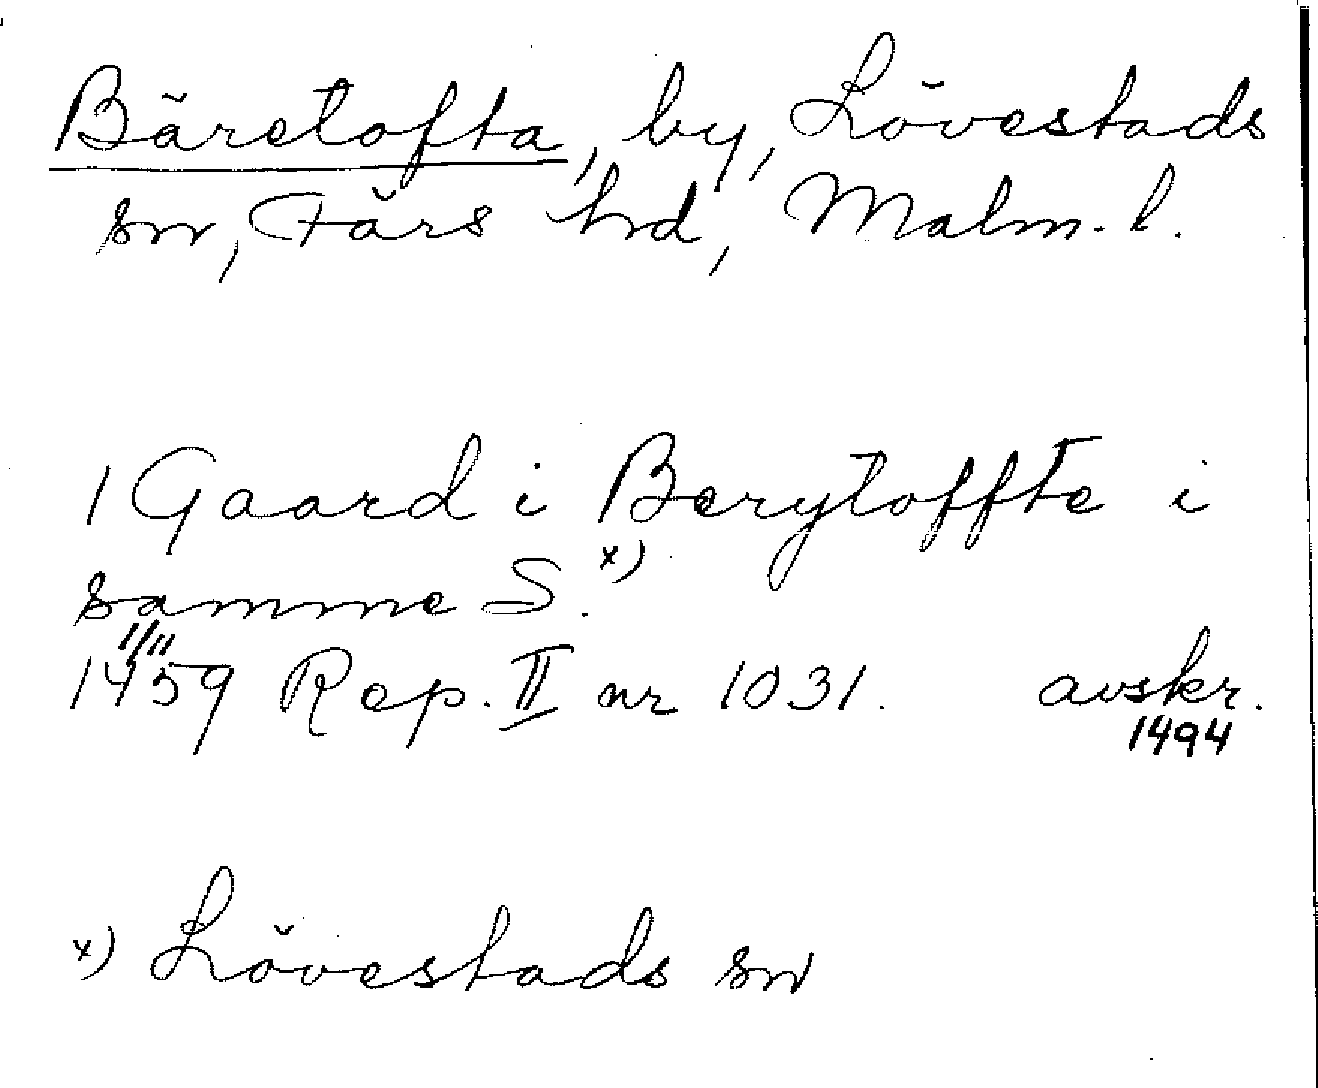 Bäretofta, by, Lövestads
sn, Färs hd, Malm. l.
1 Gaard i Berytoffte i
samme S. x)
1/11
1459 Rep. II nr 1031. avskr.
1494
x) Lövestads sn